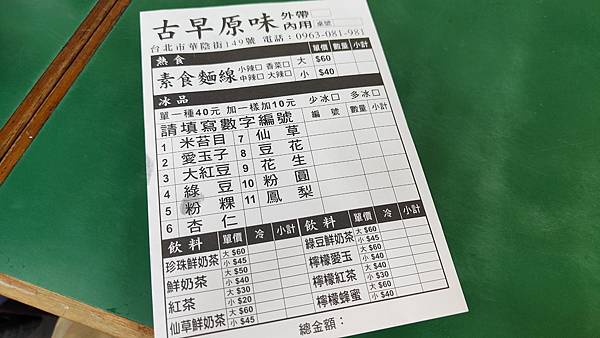 古早原味 外帶□ 內用□ 桌號
台北市華陰街149號 電話：0963-081-981
熱食 單價 數量 小計
素食麵線 小辣□ 香菜□ 中辣□ 大辣□ 大 $60
小 $40
冰品
單一種40元 加一樣加10元 少冰□ 多冰□
請填寫數字編號 編號 數量 小計
1 米苔目 7 仙草
2 愛玉子 8 豆花
3 大紅豆 9 花生
4 綠豆 10 粉圓
5 粉粿 11 鳳梨
6 杏仁
飲料 單價 冷 小計 飲料 單價 冷 小計
珍珠鮮奶茶 大 $60 小 $45 綠豆鮮奶茶 大 $60 小 $45
鮮奶茶 大 $50 小 $40 檸檬愛玉 大 $60 小 $40
紅茶 大 $30 小 $20 檸檬紅茶 大 $60 小 $30
仙草鮮奶茶 大 $60 小 $45 檸檬蜂蜜 大 $60 小 $40
總金額：